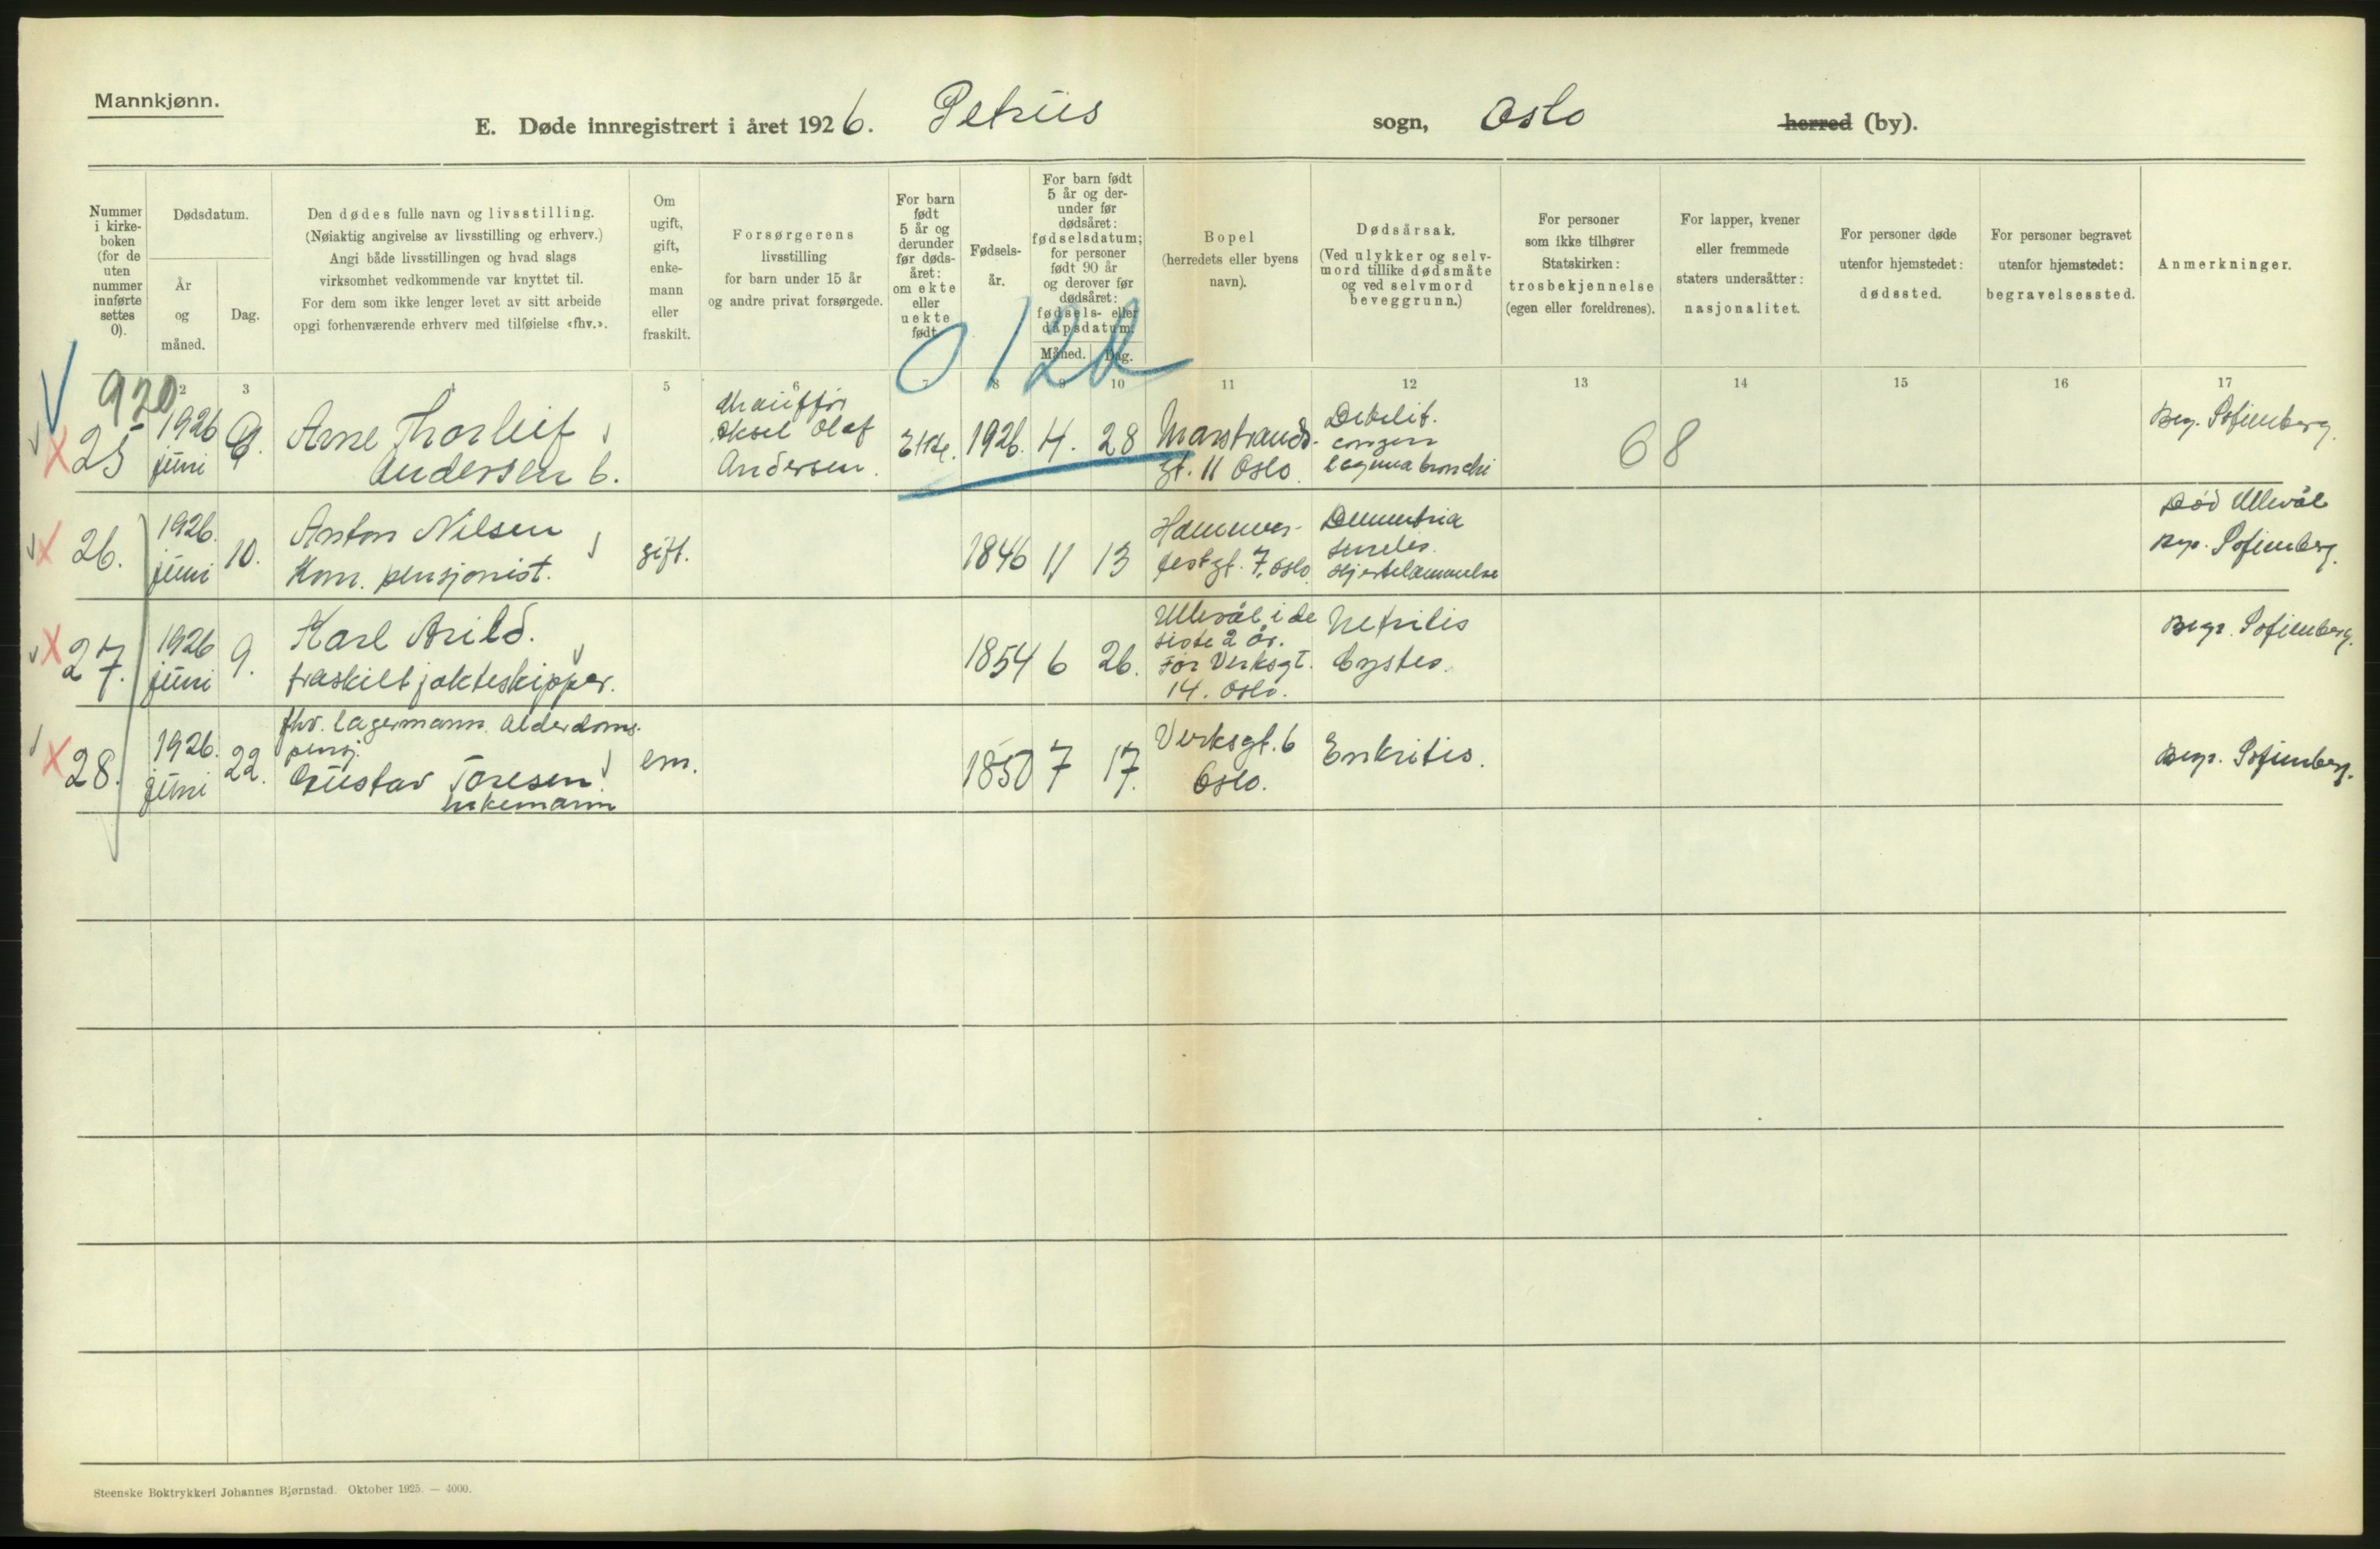 Mannkjønn.
E. Døde innregistrert i året 1926. Petrus sogn, Oslo herred (by).
Nummer i kirke-boken (for de uten nummer innførte settes 0).
Dødsdatum.
År og måned.
Dag.
Den dødes fulle navn og livsstilling.
(Nøiaktig angivelse av livsstilling og erhverv.)
Angi både livsstillingen og hvad slags
virksomhet vedkommende var knyttet til.
For dem som ikke lenger levet av sitt arbeide
opgi forhenværende erhverv med tilføielse «fhv.».
Om ugift, gift, enke-mann eller fraskilt.
Forsørgerens
livsstilling
for barn under 15 år
og andre privat forsørgede.
For barn født 5 år og derunder før døds-året: om ekte eller uekte født.
Fødsels-år.
For barn født 5 år og der-under før dødsåret: fødselsdatum; for personer født 90 år og derover før dødsåret: fødsels- eller dåpsdatum.
Måned. Dag.
Bopel
(herredets eller byens
navn).
Dødsårsak.
(Ved ulykker og selv-
mord tillike dødsmåte
og ved selvmord
beveggrunn.)
For personer
som ikke tilhører
Statskirken:
trosbekjennelse
(egen eller foreldrenes).
For lapper, kvener
eller fremmede
staters undersåtter:
nasjonalitet.
For personer døde
utenfor hjemstedet:
dødssted.
For personer begravet
utenfor hjemstedet:
begravelsessted.
Anmerkninger.
0120
920
2 3 4 5 6 7 8 9 10 11 12 13 14 15 16 17
25 1926 juni 9.
Arne Thorleif
Andersen b.
Chauffør
Aksel Olaf
Andersen.
Ekte. 1926. 4. 28
Marstrands-
gt. 11 Oslo.
Debilit.
congen
68
Begr. Sofienberg.
26. 1926. juni 10.
Anton Nilsen
Kom. pensjonist.
gift.
1846 11 13
Hammer-
festgt. 7, Oslo.
Dementria
senilis.
Hjertelammelse
Død Ullevål
Begr. Sofienberg.
27. 1926 juni 9.
Karl Arild.
fraskilt jakteskipper.
1854 6 26.
Ullevål i de
siste 2 år.
Før Verksgt.
14. Oslo.
Nefritis
Cystis.
Begr. Sofienberg.
28. 1926. juni 22.
fhv. lagermann. Alderdoms-
pensj.
Gustav Toresen
enkemann
em.
1850 7 17.
Verksgt. 6
Oslo.
Enkritis.
Begr. Sofienberg.
Steenske Boktrykkeri Johannes Bjørnstad. Oktober 1925. — 4000.